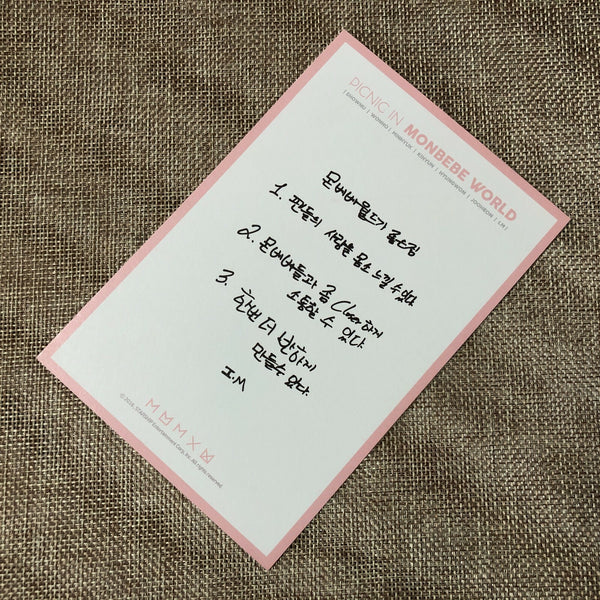 PICNIC IN MONBEBE WORLD
| SHOWNU | WONHO | MINHYUK | KIHYUN | HYUNGWON | JOOHEON | I.M |
몬베베월드가 좋은점
1. 팬들의 사랑을 몸소 느낄 수 있다.
2. 몬베베들과 좀 Closer하게
소통할 수 있다.
3. 한번 더 반하게
만들 수 있다.
I.M
© 2018. STARSHIP Entertainment Corp., Inc. All rights reserved.